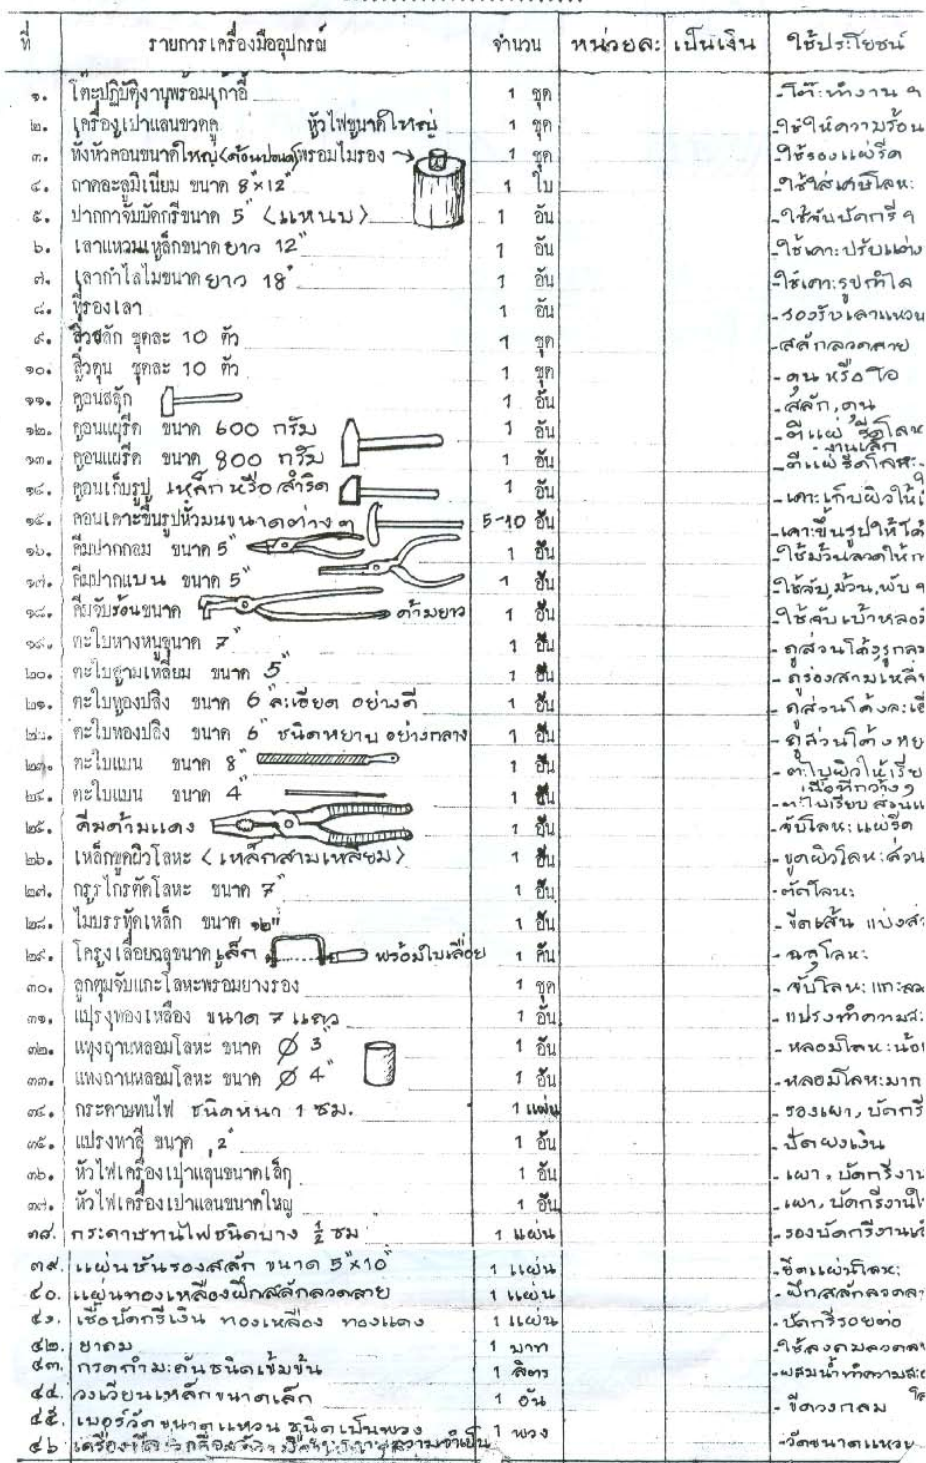 ที่ รายการเครื่องมืออุปกรณ์ จำนวน หน่วยละ เป็นเงิน ใช้ประโยชน์
๑. โต๊ะปฏิบัติงานพร้อมเก้าอี้ 1 ชุด -โต๊ะทำงาน ๆ
๒. เครื่องเป่าแล่นขวดคู่ หัวไฟขนาดใหญ่ 1 ชุด -ใช้ให้ความร้อน
๓. ทั่งหัวค้อนขนาดใหญ่(ค้อนปอนด์)พร้อมไม้รอง → 1 ชุด -ใช้รองแผ่รีด
๔. ถาดอะลูมิเนียม ขนาด 8"x12" 1 ใบ -ใช้ใส่เศษโลหะ
๕. ปากกาจับบัดกรีขนาด 5" (แหนบ) 1 อัน -ใช้จับบัดกรี ๆ
๖. เลาแหวนเหล็กขนาดยาว 12" 1 อัน -ใช้เคาะปรับแต่ง
๗. เลากำไลไม้ขนาดยาว 18" 1 อัน -ใช้เคาะรูปกำไล
๘. ที่รองเลา 1 อัน -รองรับเลาแหวน
๙. สิ่วสลัก ชุดละ 10 ตัว 1 ชุด -สลักลวดลาย
๑๐. สิ่วดุน ชุดละ 10 ตัว 1 ชุด -ดุน หรือ โอ
๑๑. ค้อนสลัก 1 อัน -สลัก,ดุน
๑๒. ค้อนแผ่รีด ขนาด 600 กรัม 1 อัน -ตีแผ่ รีดโลหะ
-งานเล็ก
๑๓. ค้อนแผ่รีด ขนาด 800 กรัม 1 อัน -ตีแผ่รีดโลหะ
๑๔. ค้อนเก็บรูป เหล็กหรือสำริด 1 อัน -เคาะเก็บผิวให้
๑๕. ค้อนเคาะขึ้นรูปหัวมนขนาดต่างๆ 5-10 อัน -เคาะขึ้นรูปให้ได้
๑๖. คีมปากกลม ขนาด 5" 1 อัน -ใช้ม้วนลวดให้ก
๑๗. คีมปากแบน ขนาด 5" 1 อัน -ใช้จับ,ม้วน,พับ ๆ
๑๘. คีมจับร้อนขนาด ด้ามยาว 1 อัน -ใช้จับเบ้าหลอม
๑๙. ตะไบหางหนูขนาด 7" 1 อัน -ถูส่วนโค้งรูกลม
๒๐. ตะไบสามเหลี่ยม ขนาด 5" 1 อัน -ถูร่องสามเหลี่
๒๑. ตะไบท้องปลิง ขนาด 6" ละเอียด อย่างดี 1 อัน -ถูส่วนโค้งละเอี
๒๒. ตะไบท้องปลิง ขนาด 6" ชนิดหยาบ อย่างกลาง 1 อัน -ถูส่วนโค้งหย
๒๓. ตะไบแบน ขนาด 8" 1 อัน -ตะไบผิวให้เรีย
เนื้อที่กว้างๆ
๒๔. ตะไบแบน ขนาด 4" 1 อัน -ตะไบเรียบส่วนแ
๒๕. คีมด้ามแดง 1 อัน -จับโลหะแผ่รีด
๒๖. เหล็กขูดผิวโลหะ (เหล็กสามเหลี่ยม) 1 อัน -ขูดผิวโลหะส่วน
๒๗. กรรไกรตัดโลหะ ขนาด 7" 1 อัน -ตัดโลหะ
๒๘. ไม้บรรทัดเหล็ก ขนาด ๑๒" 1 อัน -ขีดเส้น แบ่งส่
๒๙. โครงเลื่อยฉลุขนาดเล็ก พร้อมใบเลื่อย 1 คัน -ฉลุโลหะ
๓๐. ลูกตุ้มจับแกะโลหะพร้อมยางรอง 1 ชุด -จับโลหะแกะลว
๓๑. แปรงทองเหลือง ขนาด 7 แถว 1 อัน -แปรงทำความสะ
๓๒. แท่งถ่านหลอมโลหะ ขนาด Ø 3" 1 อัน -หลอมโลหะน้อย
๓๓. แท่งถ่านหลอมโลหะ ขนาด Ø 4" 1 อัน -หลอมโลหะมาก
๓๔. กระดาษทนไฟ ชนิดหนา 1 ซม. 1 แผ่น -รองเผา,บัดกรี
๓๕. แปรงทาสี ขนาด 2" 1 อัน -ปัดผงเงิน
๓๖. หัวไฟเครื่องเป่าแล่นขนาดเล็ก 1 อัน -เผา,บัดกรีงาน
๓๗. หัวไฟเครื่องเป่าแล่นขนาดใหญ่ 1 อัน -เผา,บัดกรีงานให
๓๘. กระดาษทนไฟชนิดบาง ½ ซม 1 แผ่น -รองบัดกรีงานเ
๓๙. แผ่นชันรองสลัก ขนาด 5"x10" 1 แผ่น -ยึดแผ่นโลหะ
๔๐. แผ่นทองเหลืองฝึกสลักลวดลาย 1 แผ่น -ฝึกสลักลวดลา
๔๑. เชื้อบัดกรีเงิน ทองเหลือง ทองแดง 1 แผ่น -บัดกรีรอยต่อ
๔๒. ยาถม 1 บาท -ใช้ลงถมลวดลา
๔๓. กรดกำมะถันชนิดเข้มข้น 1 ลิตร -ผสมน้ำทำความสะอ
๔๔. วงเวียนเหล็กขนาดเล็ก 1 อัน -ขีดวงกลม
๔๕. เบอร์วัดขนาดแหวน ชนิดเป็นพวง 1 พวง -วัดขนาดแหวน
๔๖ เครื่องมือ ความจำเป็น